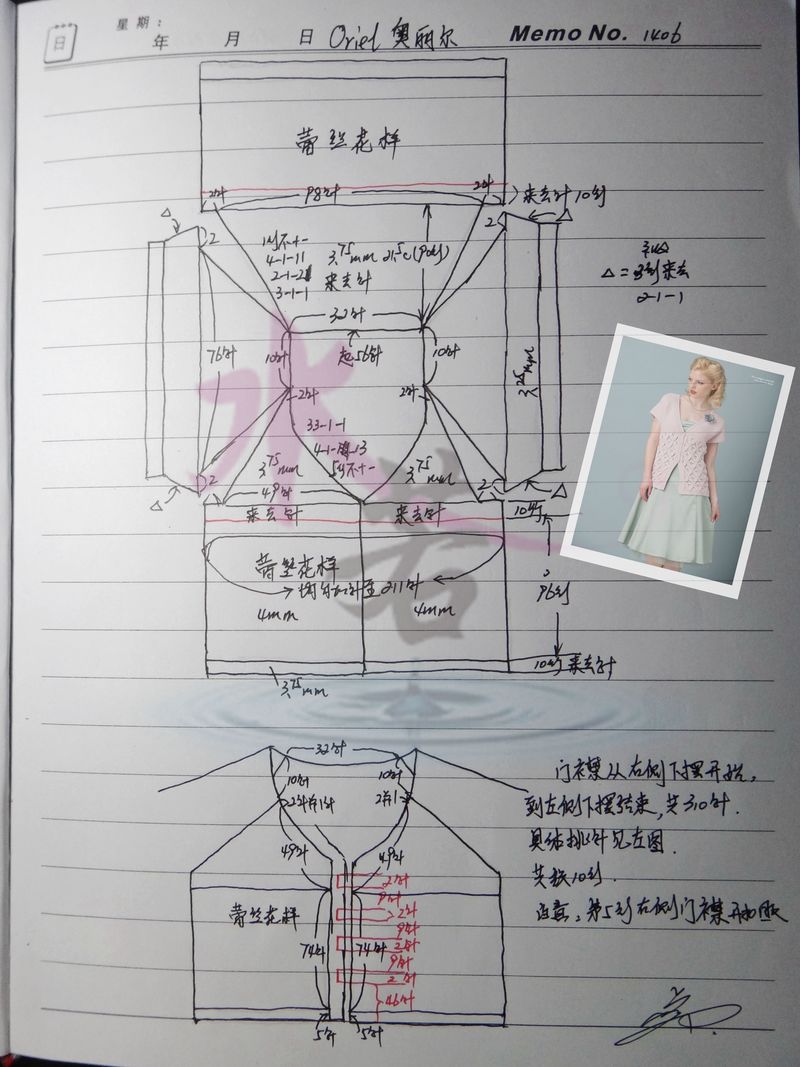 星期:
日
年 月 日 Oriel 奥丽尔 Memo No. 1406
蕾丝花样
2针 98针 2针
来去针10行
△ 2 2 △
1行不十一
4-1-11
2-1-2
3-1-1
3.75mm
来去针
21.5c(90行)
△=
2-1-1
32针
76针 10针 起56针 10针
3.25mm
2针 2针
33-1-1
4-1-13
54不十一
3.75mm 3.75mm
2 2
△ △
49针
来去针 来去针 10行
蕾丝花样
均匀加针至211针
4mm 4mm
96行
10行 来去针
3.75mm
32针
10针 10针
2针并1针 2并1
49针 49针
2针
9针
2针
9针
2针
9针
2针
46针
蕾丝花样
74针 74针
5针 5针
门襟从右侧下摆开始,
到左侧下摆结束,共310针.
具体挑针见左图.
共织10行.
注意,第5行右侧门襟开扣眼
水
若